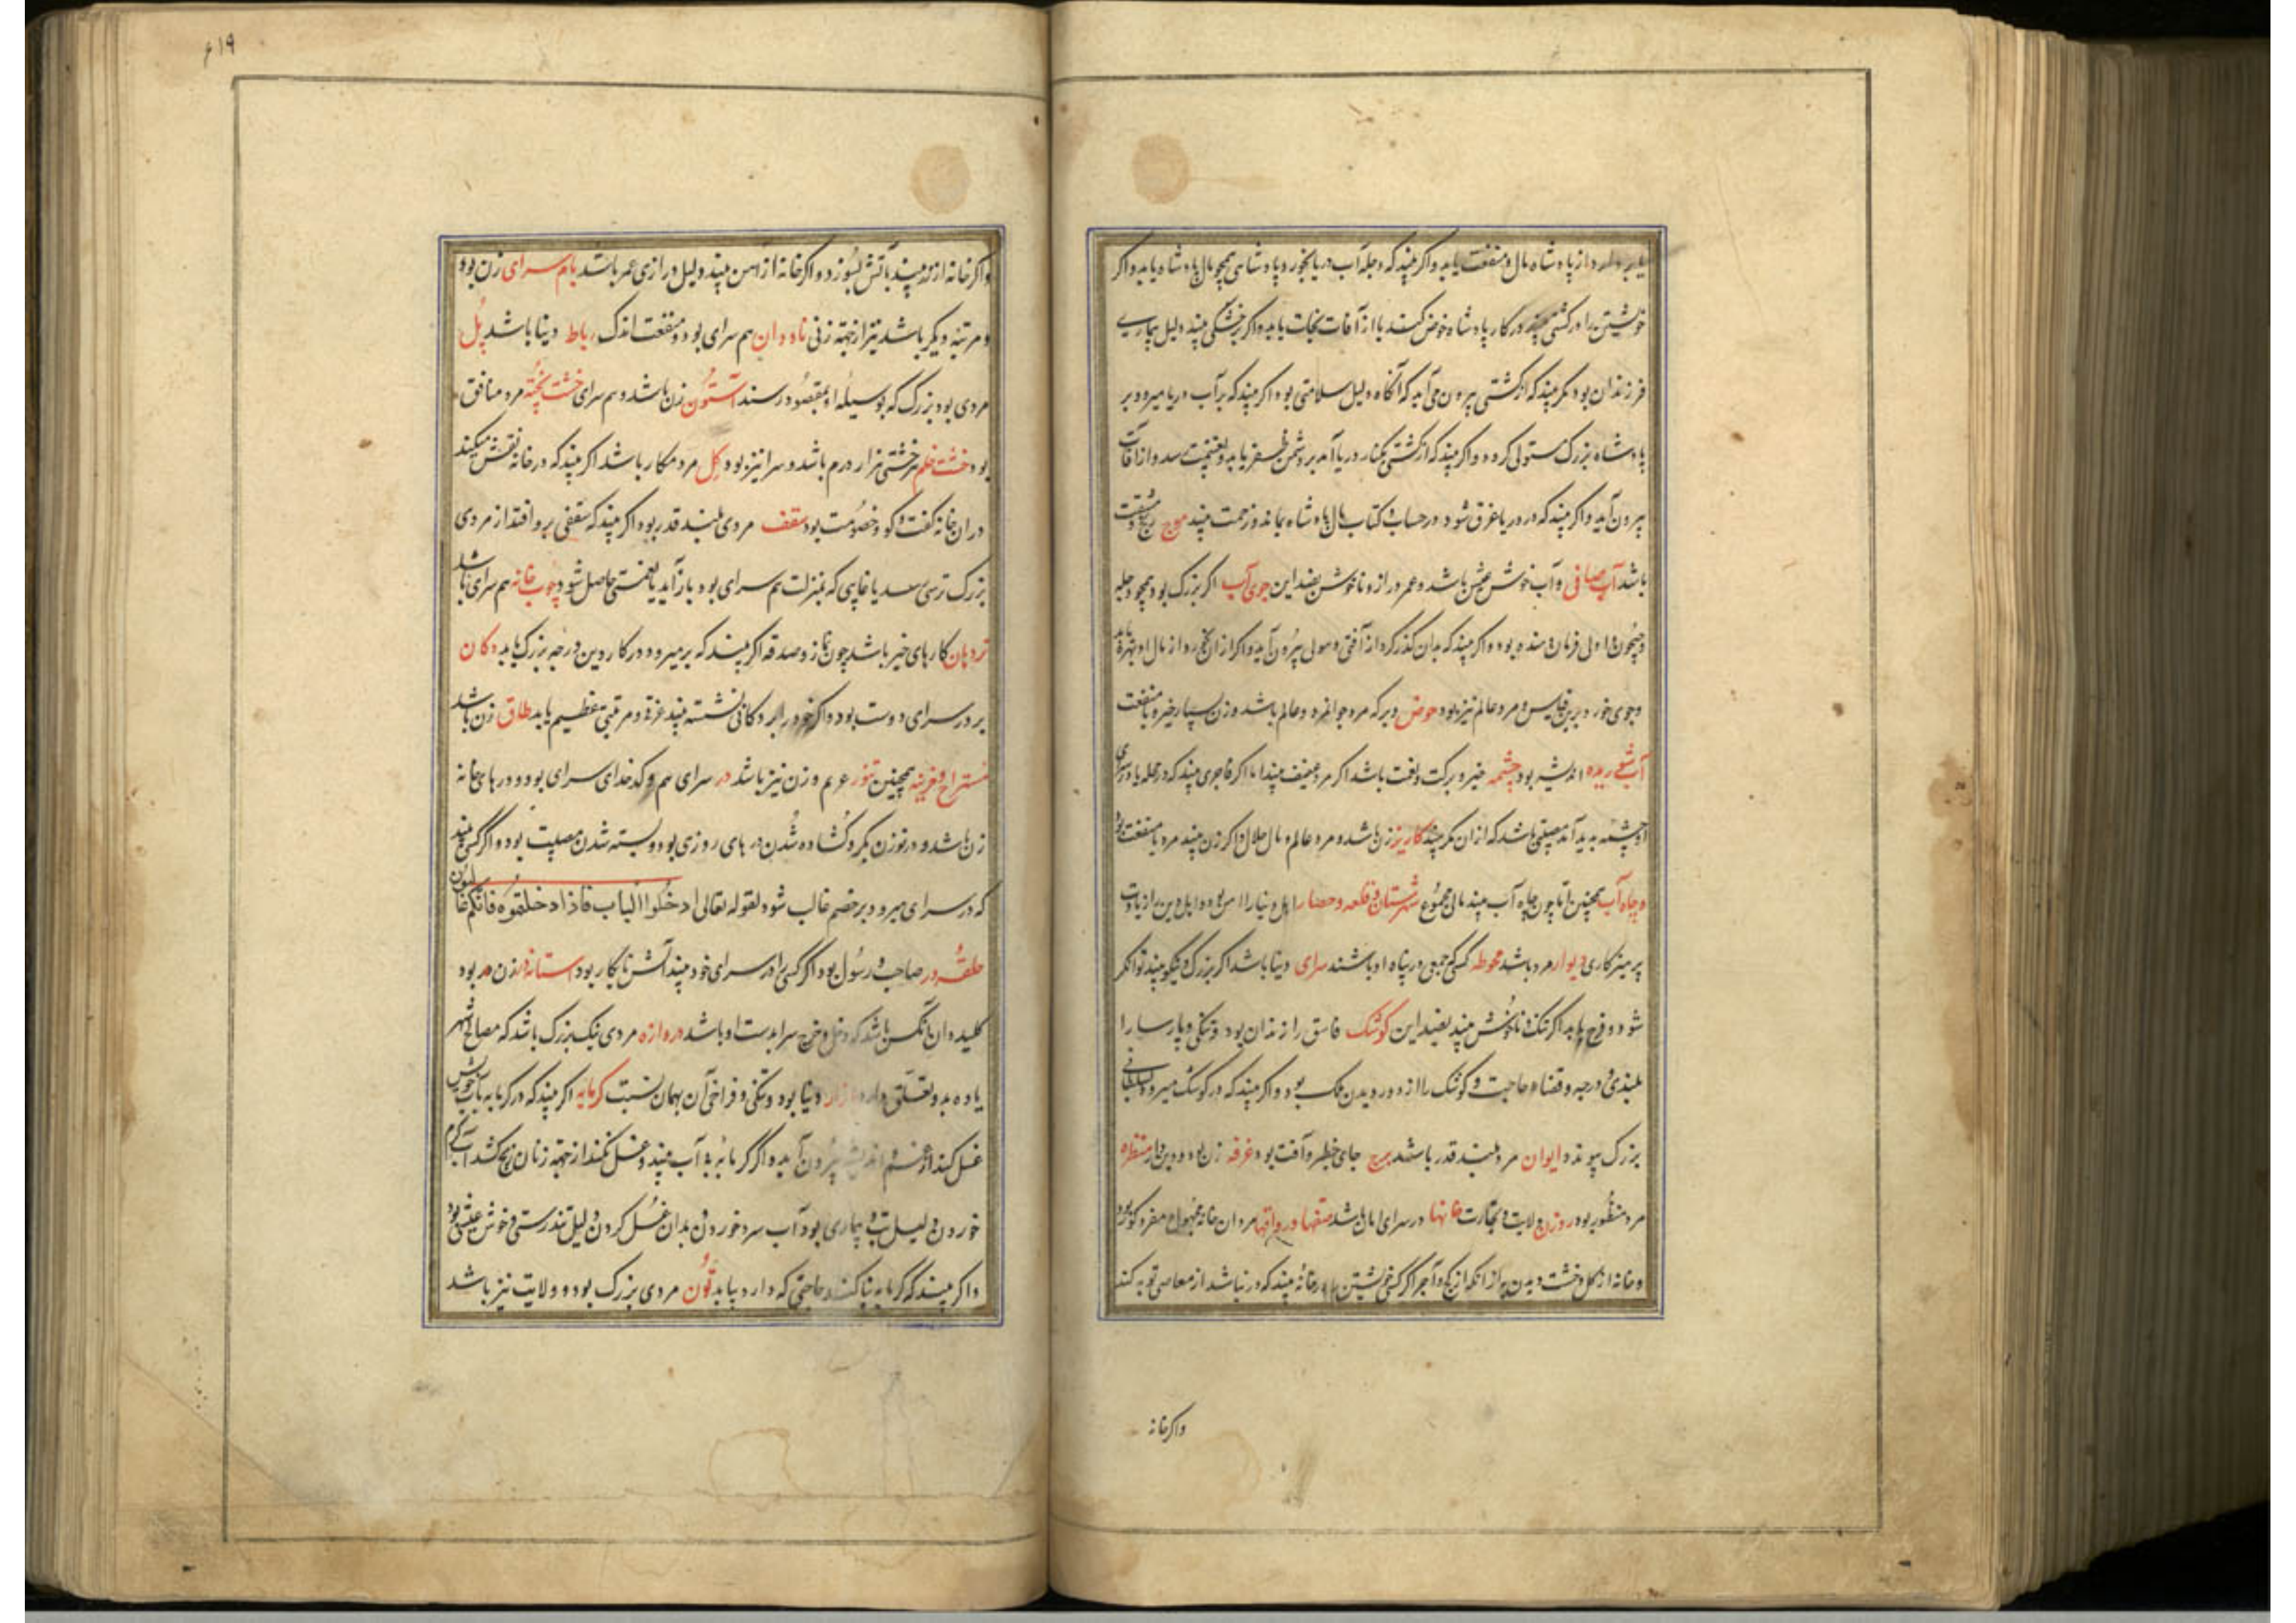 یا بردارد از پادشاه مال و منفعت یابد و اکر بیند که دجله آب دریا بخورد پادشاهی همچو مال پادشاه یابد و اکر
خویشتن را در کشتی بیند در کار پادشاه خوض کند یا از آفات نجات یابد و اکر بخشکی بیند دلیل بیماری
فرزندان بود مکر بیند که از کشتی بیرون می آید که آنکاه دلیل سلامتی بود اکر بیند که بر آب دریا میرود بر
پادشاه بزرک مستولی کردد و اکر بیند که از کشتی بکنار دریا آمد بر دشمن ظفر یابد و بغنیمت رسد و از آفات
بیرون آید و اکر بیند که در دریا غرق شود در حساب و کتاب مال پادشاه بماند و زحمت بیند موج رنج و مشقت
باشد آب صافی و آب خوش عیش باشد و عمر دراز و ناخوش بضد این جوی آب اکر بزرک بود همچو دجله
و جیحون اولی فرمان دهنده بود و اکر بیند که بدان گذر کرد از آفتی و هولی بیرون آید و اکر از آن خورد از مال او بهره یابد
و جوی خورد برین قیاس و مرد عالم نیز بود حوض و برکه مرد جوانمرد و عالم باشد و زن بسیار خیر و با منفعت
آب تیره اندیشه بود چشمه خیر و برکت و نعمت باشد اکر مرد عفیف بیند اما اکر فاجری بیند که در محله یا در سرای
او چشمه پدید آمد مصیبتی باشد که از ان بگرید کاریز زن باشد و مرد عالم و مال حلال و اکر زن بیند مرد با منفعت بود
و چاه آب همچنین اما چون چاه آب بیند مالی مجموع شهرستان و قلعه و حصار اهل دنیا را امن بود و اهل دین را زیادت
پرهیزکاری دیوار مرد باشد محوطه کسی که جمعی در پناه او باشند سرای دنیا باشد اکر بزرک و نیکو بیند توانکر
شود و فرح یابد اکر تنک و ناخوش بیند بضد این کوشک فاسق را زندان بود و تنکی و پارسا را
بلندی و درجه و قضاء حاجت و کوشک را از دور دیدن ملک بود و اکر بیند که در کوشک میرود بسلطانی
بزرک پیوندد ایوان مرد بلند قدر باشد برج جای خطر و آفت بود غرفه زن بود و دین دار منظره
مرد منظور بود روزن ولایت و تجارت خانها در سرای امان باشد صفها و رواقها مردان خانه مجهول مفرد کور بود
و خانه از کل و خشت دیدن به از آنکه از کچ و آجر اکر کسی خویشتن را در خانهٔ بیند که در نباشد از معاصی توبه کند
واکر خانه
۶۱۹
واکر خانه از زر بیند بآتش بسوزد و اکر خانه از آهن بیند دلیل درازی عمر باشد بام سرای زن بود
و مرتبهٔ دیکر باشد نیز از جهة زنی ناودان هم سرای بود و منفعت اندک رباط دنیا باشد پل
مردی بود بزرک که بوسیلهٔ او بمقصود رسند استون زن باشد و هم سرای خشت پخته مرد منافق
بود خشت خام هر خشتی هزار درم باشد و سرا نیز بود کل مرد مکار باشد اکر بیند که در خانه نقش میکند
در ان خانه کفت و کو و خصومت بود سقف مردی بلند قدر بود اکر بیند که سقفی برو افتد از مردی
بزرک ترسی رسد یا غایبی که بمنزلت هم سرای بود باز آید یا نعمتی حاصل شود چوب خانه هم سرای باشد
نردبان کارهای خیر باشد چون نماز و صدقه اکر بیند که بر میرود در کار دین درجهٔ بزرک یابد دکان
بر در سرای دوست بود و اکر خود را بر دکانی نشسته بیند عزة و مرتبتی عظیم یابد طاق زن باشد
مستراح و خزینه همچنین تنور عرم و زن نیز باشد در سرای هم و کدخدای سرای بود و درهای خانه
زن باشد و در نو زن بکر و کشاده شدن درهای روزی بود و بسته شدن مصیبت بود و اکر کسی بیند
که در سرای میرود بر خصم غالب شود لقوله تعالی ادخلوا الباب فاذا دخلتموه فانکم غالبون
حلقهٔ در صاحب و رسول بود اکر کسی را در سرای خود بیند آتش نابکار بود استانهٔ در زن مرد بود
کلیدان آنکس باشد که دخل و خرج سرا بدست او باشد دروازه مردی نیک بزرک باشد که مصالح شهر
یا ده بدو تعلق دارد بازار دنیا بود و تنکی و فراخی آن بهمان نسبت کرمابه اکر بیند که در کرمابه بآب خوش
غسل کند از غم و اندیشه بیرون آید و اکر کرمابهٔ بی آب بیند و غسل نکند از جهة زنان رنج کشد آب کرم
خوردن دلیل تب و بیماری بود آب سرد خوردن و بدان غسل کردن دلیل تندرستی و خوش عیشی بود
واکر بیند که کرمابه بنا کند حاجتی که دارد بیابد تون مردی بزرک بود و ولایت نیز باشد